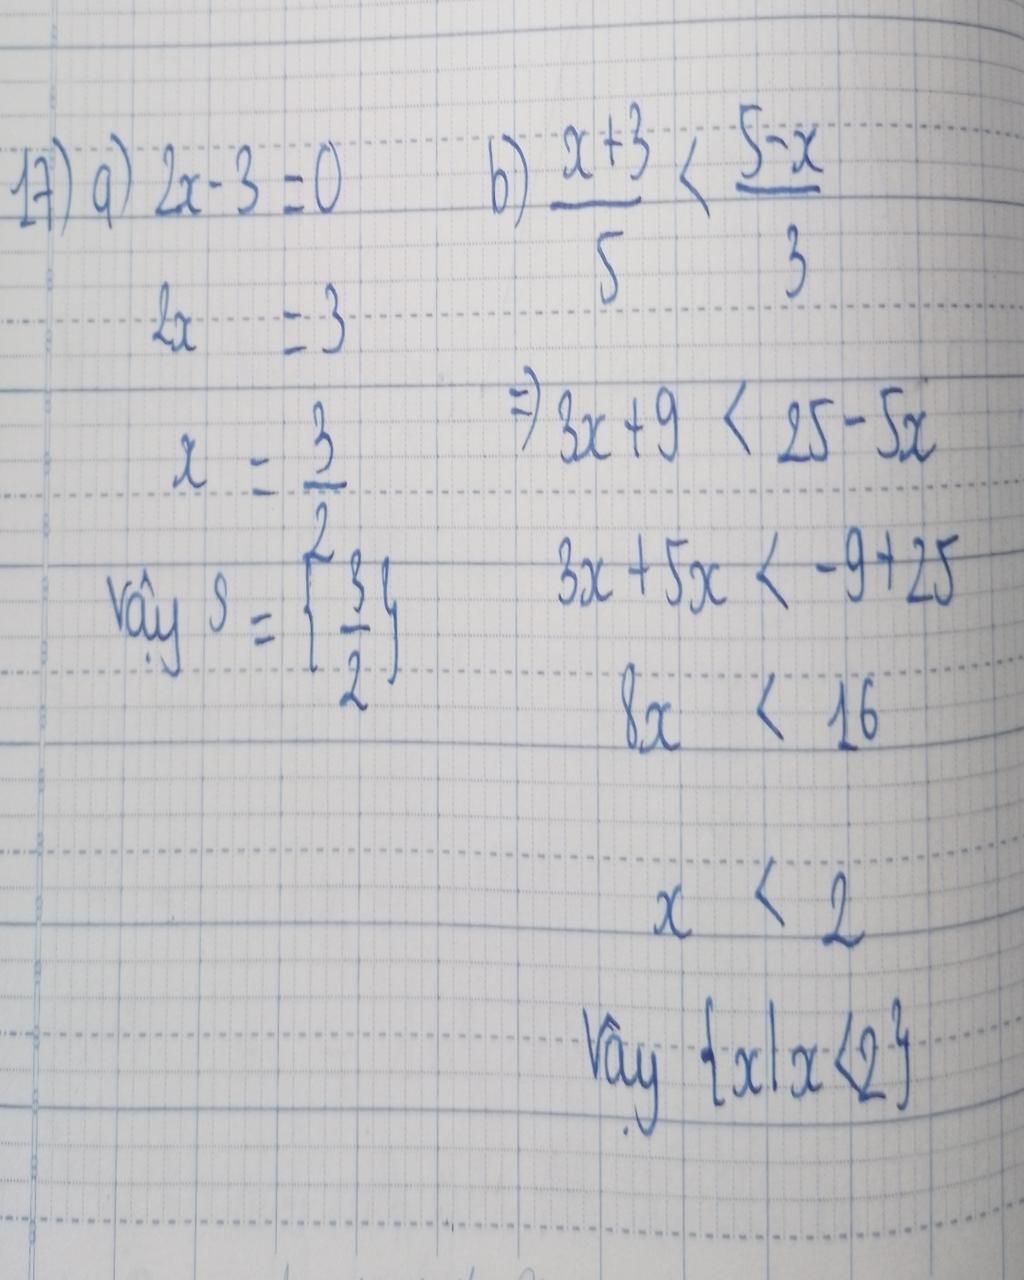 17) a) 2x - 3 = 0
2x = 3
x = 3/2
Vậy S = {3/2}
b) x+3/5 < 5-x/3
=) 3x + 9 < 25 - 5x
3x + 5x < -9 + 25
8x < 16
x < 2
Vậy {x | x < 2}